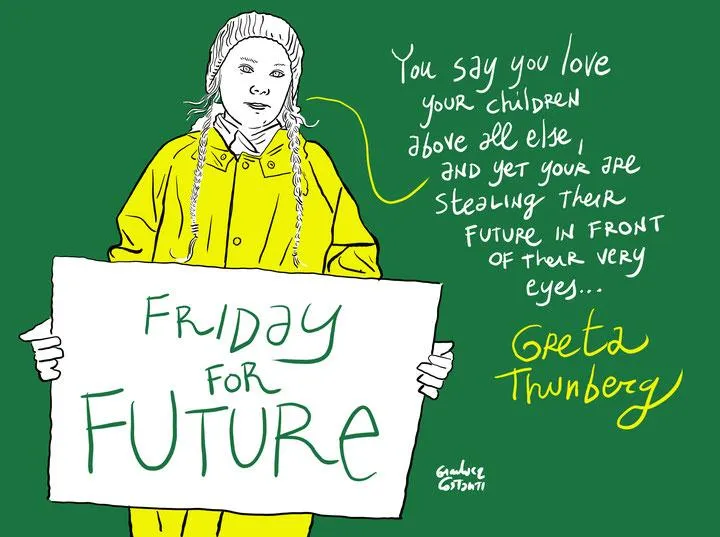 You say you love
your children
above all else,
and yet your are
stealing their
future in front
of their very
eyes...
Greta
Thunberg
FRIDay
FOR
FUTURe
Gianluca
Costantini